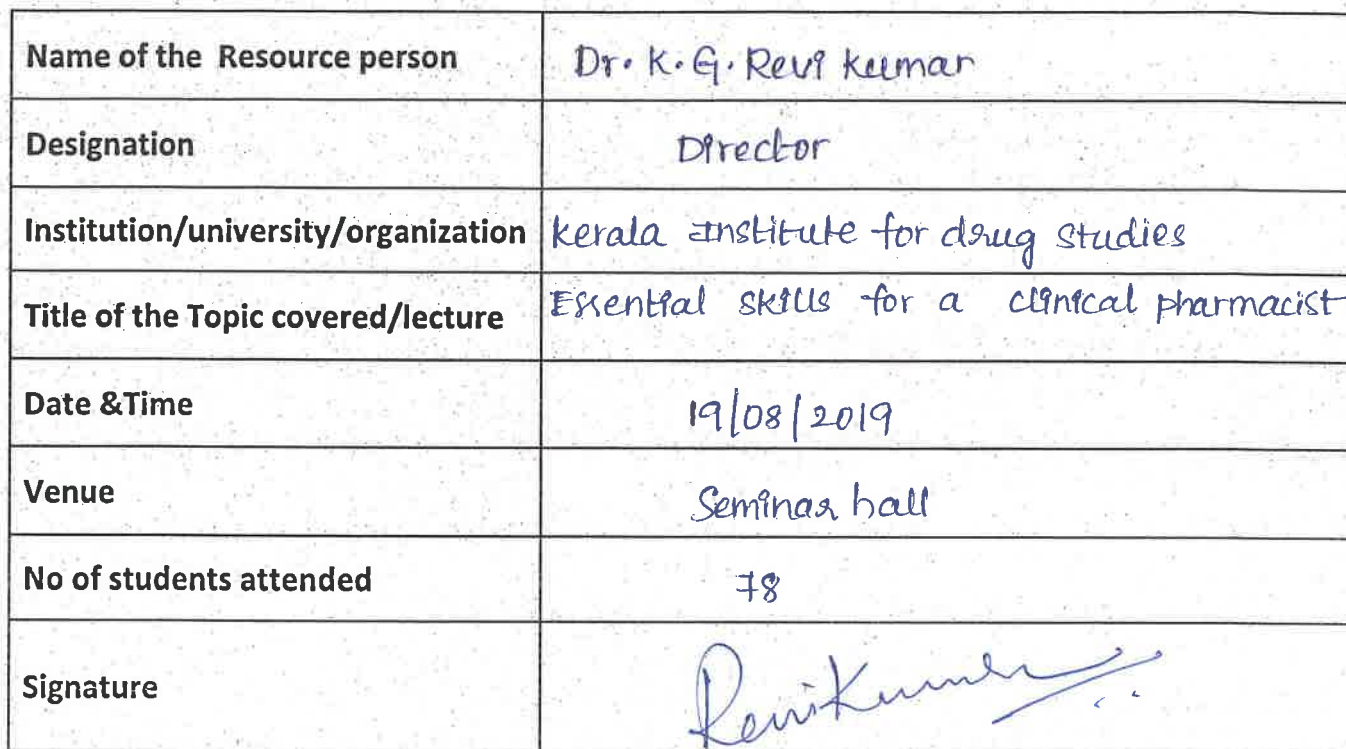 Name of the Resource person Dr. K. G. Revi Kumar
Designation Director
Institution/university/organization Kerala Institute for drug studies
Title of the Topic covered/lecture Essential skills for a clinical pharmacist
Date &Time 19/08/2019
Venue Seminar hall
No of students attended 78
Signature RaviKumar